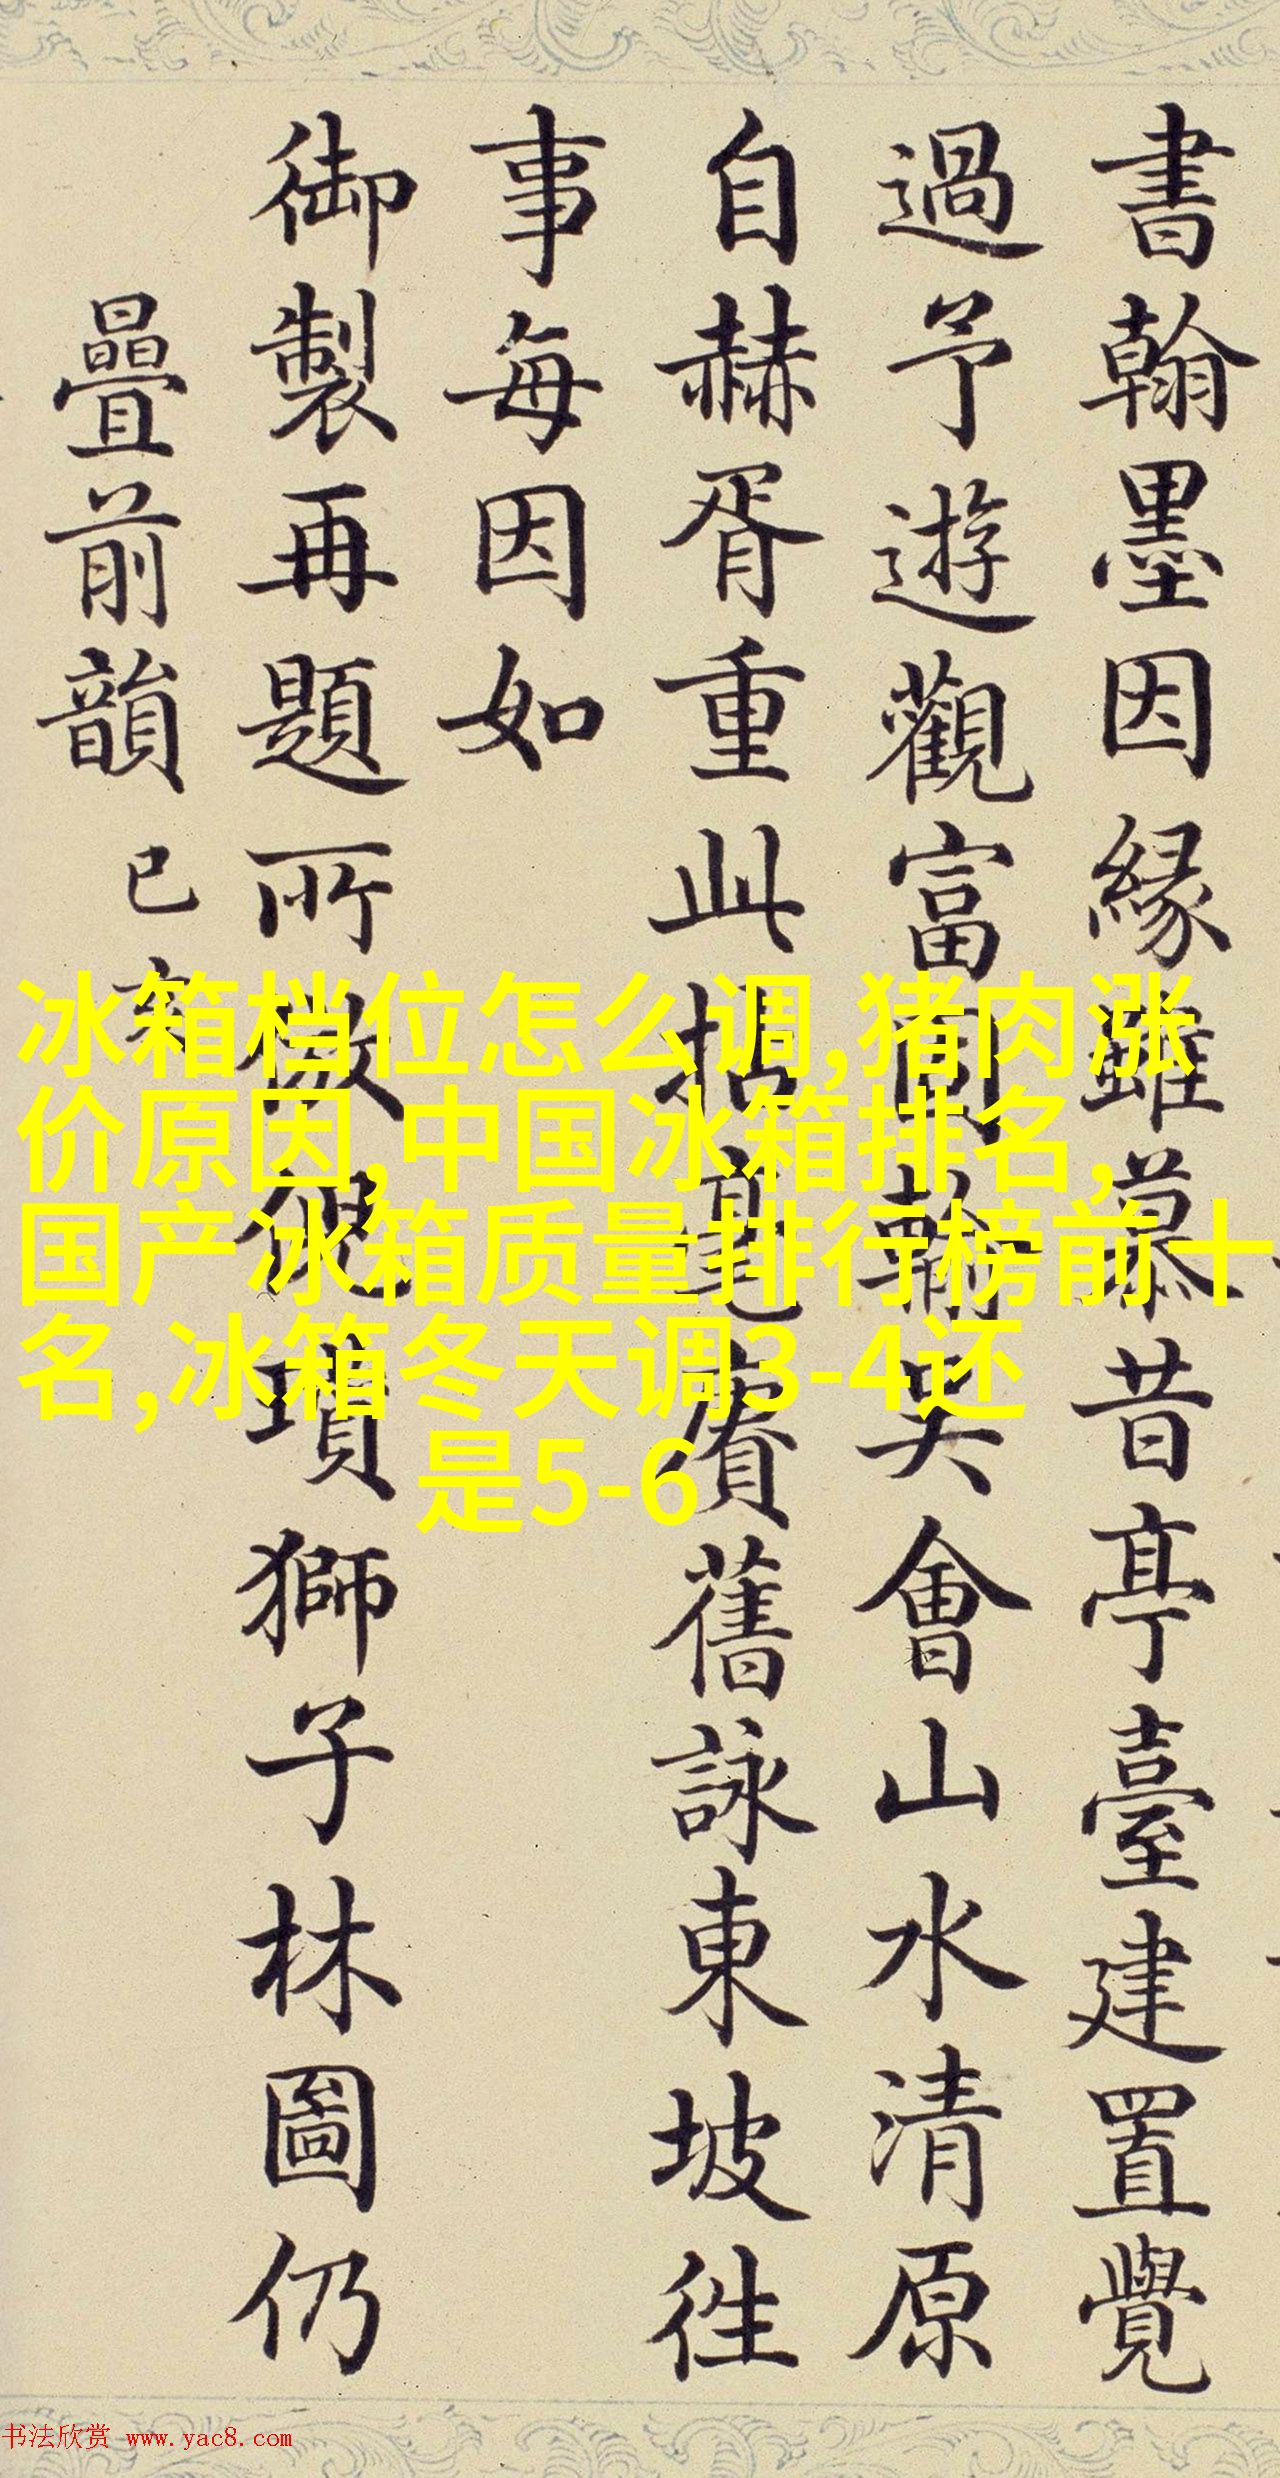 書翰墨因緣雖慕昔亭臺建置覺
過予遊觀富翰笑會山水清原
自赫胥重此拈毫賡舊詠東坡徃
事每因如
御製再題所倣倪瓚獅子林圖仍
疊前韻 已
冰箱档位怎么调,猪肉涨
价原因,中国冰箱排名,
国产冰箱质量排行榜前十
名,冰箱冬天调3-4还
是5-6
书法欣赏 www.yac8.com